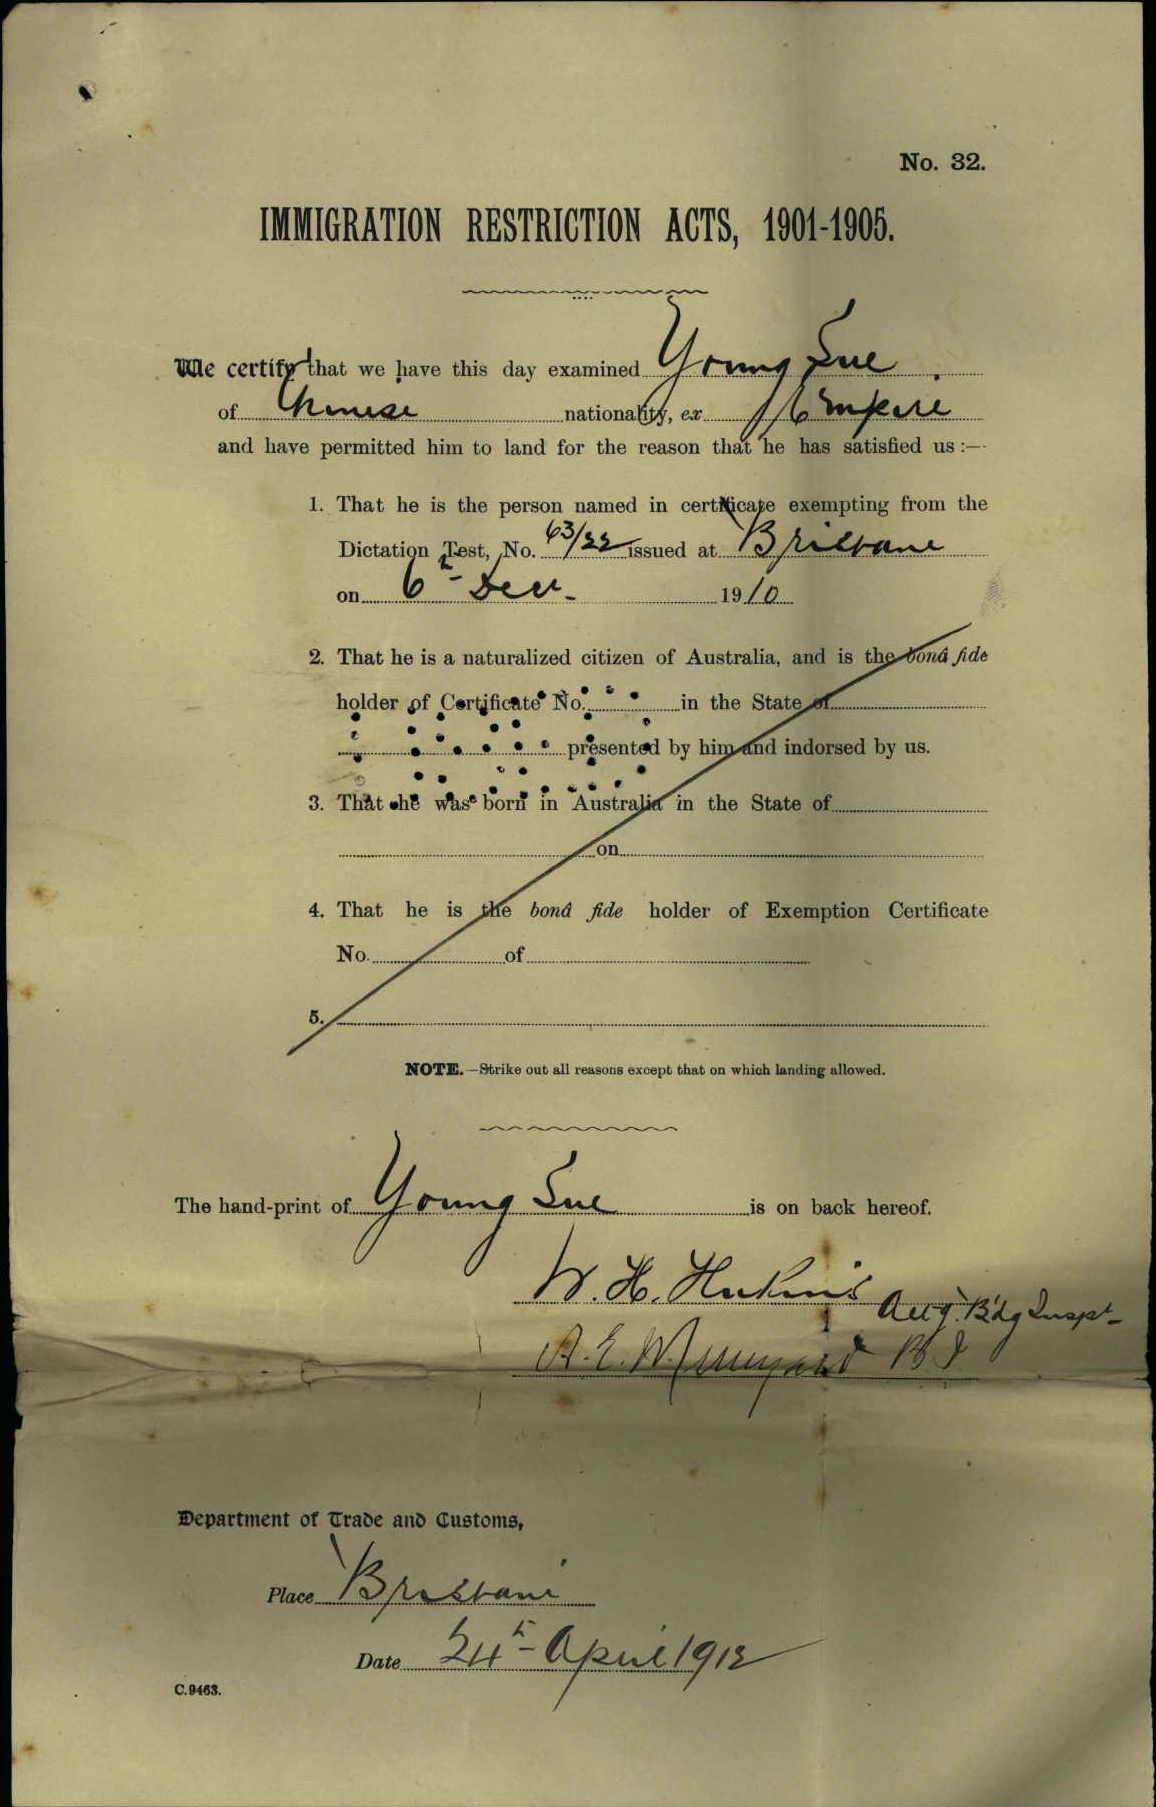 No. 32.
IMMIGRATION RESTRICTION ACTS, 1901-1905.
We certify that we have this day examined Young Sue
of Chinese nationality, ex Empire
and have permitted him to land for the reason that he has satisfied us :—
1. That he is the person named in certificate exempting from the
Dictation Test, No. 63/22 issued at Brisbane
on 6th Decr. 1910
2. That he is a naturalized citizen of Australia, and is the bonâ fide
holder of Certificate No. in the State of
presented by him and indorsed by us.
3. That he was born in Australia in the State of
on
4. That he is the bonâ fide holder of Exemption Certificate
No. of
5.
NOTE.—Strike out all reasons except that on which landing allowed.
The hand-print of Young Sue is on back hereof.
W. H. Actg. B'dg Inspt
A. E. B I
Department of Trade and Customs,
Place Brisbane
Date 24th April 1912
C.9463.